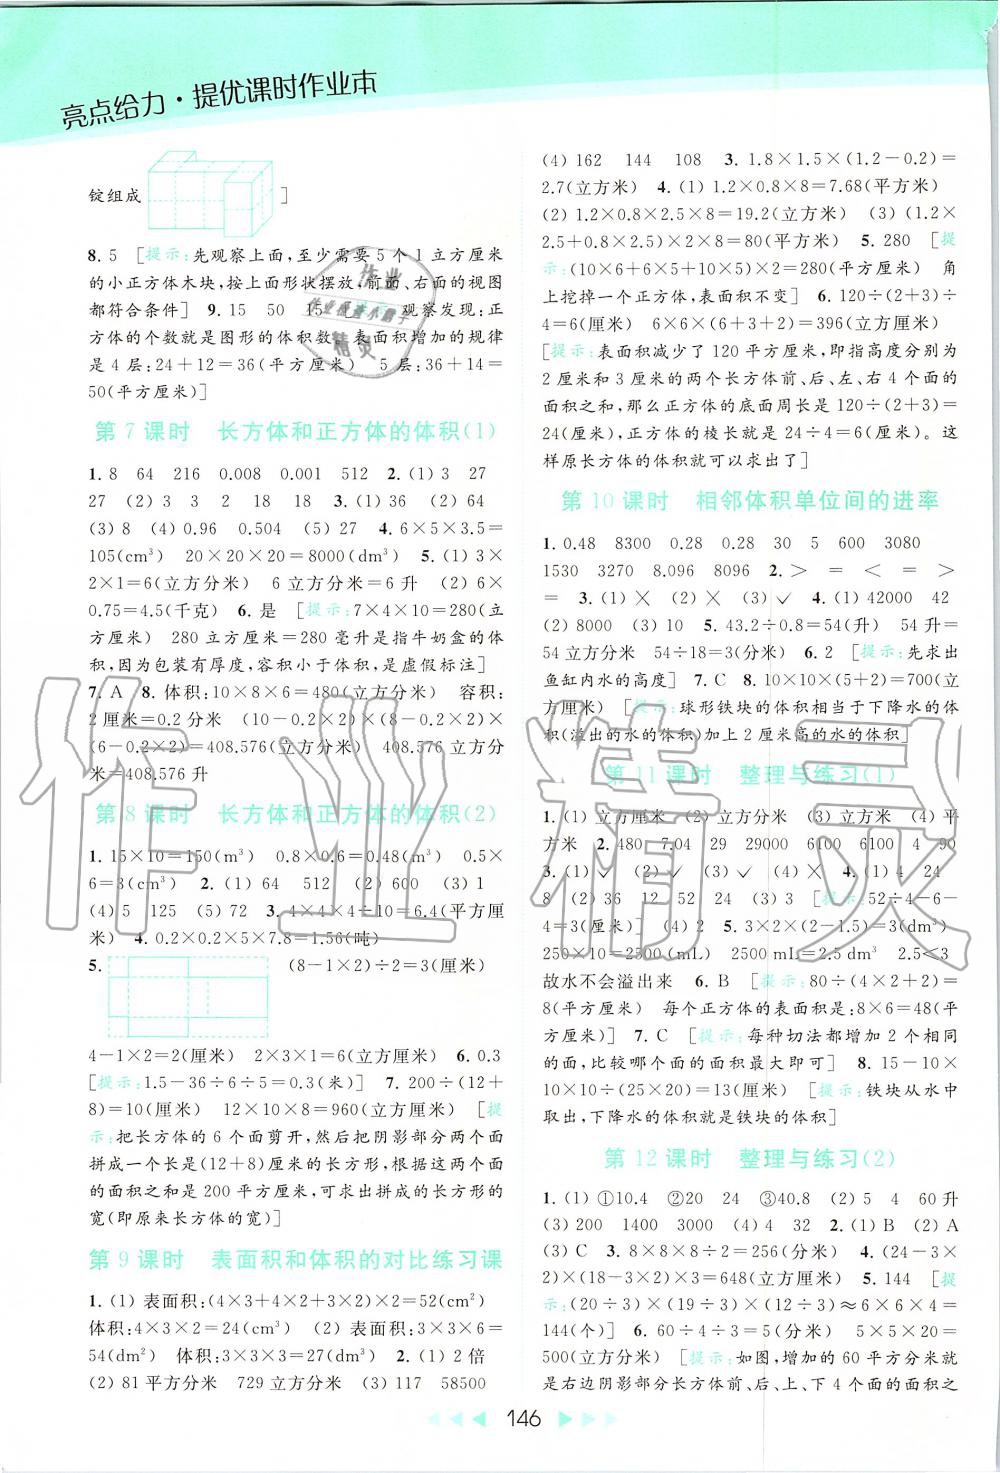 亮点给力·提优课时作业本
锭组成 ]
8. 5 [提示:先观察上面,至少需要 5 个 1 立方厘米
的小正方体木块,按上面形状摆放,前面、右面的视图
都符合条件] 9. 15 50 15 观察发现:正
方体的个数就是图形的体积数 表面积增加的规律
是 4 层:24+12=36(平方厘米) 5 层:36+14=
50(平方厘米)]
第 7 课时 长方体和正方体的体积(1)
1. 8 64 216 0.008 0.001 512 2. (1) 3 27
27 (2) 3 3 2 18 18 3. (1) 6 (2) 64
(3) 8 (4) 0.96 0.504 (5) 27 4. 6×5×3.5=
105(cm³) 20×20×20=8000(dm³) 5. (1) 3×
2×1=6(立方分米) 6 立方分米=6 升 (2) 6×
0.75=4.5(千克) 6. 是 [提示:7×4×10=280(立
方厘米) 280 立方厘米=280 毫升是指牛奶盒的体
积,因为包装有厚度,容积小于体积,是虚假标注]
7. A 8. 体积:10×8×6=480(立方分米) 容积:
2 厘米=0.2 分米 (10-0.2×2)×(8-0.2×2)×
(6-0.2×2)=408.576(立方分米) 408.576 立方分
米=408.576 升
第 8 课时 长方体和正方体的体积(2)
1. 15×10=150(m³) 0.8×0.6=0.48(m³) 0.5×
6=3(cm³) 2. (1) 64 512 (2) 600 (3) 1
(4) 5 125 (5) 72 3. 4×4×4÷10=6.4(平方厘
米) 4. 0.2×0.2×5×7.8=1.56(吨)
5. (8-1×2)÷2=3(厘米)
4-1×2=2(厘米) 2×3×1=6(立方厘米) 6. 0.3
[提示:1.5-36÷6÷5=0.3(米)] 7. 200÷(12+
8)=10(厘米) 12×10×8=960(立方厘米) [提
示:把长方体的 6 个面剪开,然后把阴影部分两个面
拼成一个长是(12+8)厘米的长方形,根据这两个面
的面积之和是 200 平方厘米,可求出拼成的长方形的
宽(即原来长方体的宽)]
第 9 课时 表面积和体积的对比练习课
1. (1) 表面积:(4×3+4×2+3×2)×2=52(cm²)
体积:4×3×2=24(cm³) (2) 表面积:3×3×6=
54(dm²) 体积:3×3×3=27(dm³) 2. (1) 2 倍
(2) 81 平方分米 729 立方分米 (3) 117 58500
(4) 162 144 108 3. 1.8×1.5×(1.2-0.2)=
2.7(立方米) 4. (1) 1.2×0.8×8=7.68(平方米)
(2) 1.2×0.8×2.5×8=19.2(立方米) (3) (1.2×
2.5+0.8×2.5)×2×8=80(平方米) 5. 280 [提
示:(10×6+6×5+10×5)×2=280(平方厘米) 角
上挖掉一个正方体,表面积不变] 6. 120÷(2+3)÷
4=6(厘米) 6×6×(6+3+2)=396(立方厘米)
[提示:表面积减少了 120 平方厘米,即指高度分别为
2 厘米和 3 厘米的两个长方体前、后、左、右 4 个面的
面积之和,那么正方体的底面周长是 120÷(2+3)=
24(厘米),正方体的棱长就是 24÷4=6(厘米)。这
样原长方体的体积就可以求出了]
第 10 课时 相邻体积单位间的进率
1. 0.48 8300 0.28 0.28 30 5 600 3080
1530 3270 8.096 8096 2. > = < = >
= 3. (1) × (2) × (3) ✓ 4. (1) 42000 42
(2) 8000 (3) 10 5. 43.2÷0.8=54(升) 54 升=
54 立方分米 54÷18=3(分米) 6. 2 [提示:先求出
鱼缸内水的高度] 7. C 8. 10×10×(5+2)=700(立
方厘米) [提示:球形铁块的体积相当于下降水的体
积(溢出的水的体积)加上 2 厘米高的水的体积]
第 11 课时 整理与练习(1)
1. (1) 立方厘米 (2) 立方分米 (3) 立方米 (4) 平
方米 2. 480 7.04 29 29000 6100 6100 4 90
3. (1) ✓ (2) ✓ (3) ✓ (4) × 4. (1) 4 24
8 (2) 36 12 52 24 (3) 3 [提示:52÷4-6-
4=3(厘米)] (4) 2 5. 3×2×1.5=3(dm³)
250×10=2500(mL) 2500 mL=2.5 dm³ 2.5<3
故水不会溢出来 6. B [提示:80÷(4×2+2)=
8(平方厘米) 每个正方体的表面积是:8×6=48(平
方厘米)] 7. C [提示:每种切法都增加 2 个相同
的面,比较哪个面的面积最大即可] 8. 15-10×
10×10÷(25×20)=13(厘米) [提示:铁块从水中
取出,下降水的体积就是铁块的体积]
第 12 课时 整理与练习(2)
1. (1) ①10.4 ②20 24 ③40.8 (2) 5 4 60 升
(3) 200 1400 3000 (4) 4 32 2. (1) B (2) A
(3) C 3. 8×8×8÷2=256(分米) 4. (24-3×
2)×(18-3×2)×3=648(立方厘米) 5. 144 [提
示:(20÷3)×(19÷3)×(12÷3)≈6×6×4=
144(个)] 6. 60÷4÷3=5(分米) 5×5×20=
500(立方分米) [提示:如图,增加的 60 平方分米就
是右边阴影部分长方体前、后、上、下 4 个面的面积之
146
作业精灵